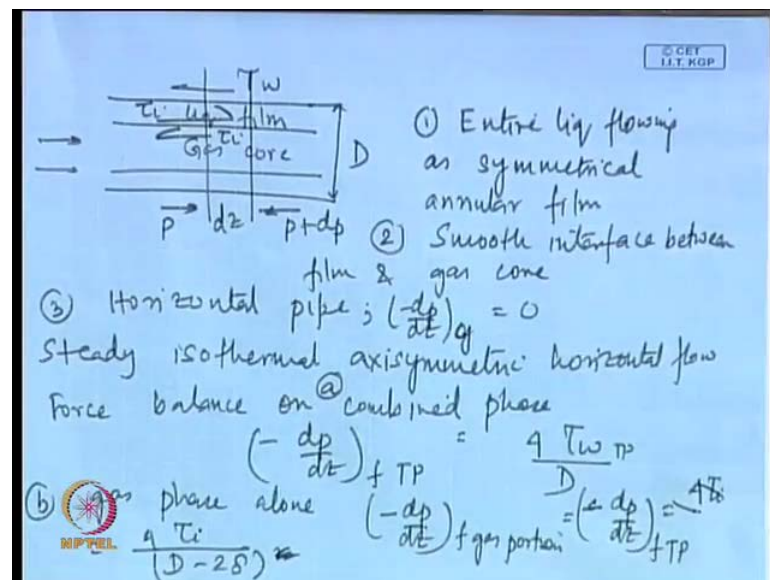 © CET
I.I.T. KGP
τw
τi liq film
τi
Gas core
D
P dz p+dp
① Entire liq flowing
as symmetrical
annular film
② Smooth interface between
film & gas core
③ Horizontal pipe ; (-dp/dz)g = 0
Steady isothermal axisymmetric horizontal flow
Force balance on ⓐ combined phase
(- dp/dz) f TP = 4 τw TP / D
ⓑ gas phase alone (-dp/dz) f gas portion = (- dp/dz) f TP = 4τi
= 4 τi / (D-2δ)
NPTEL